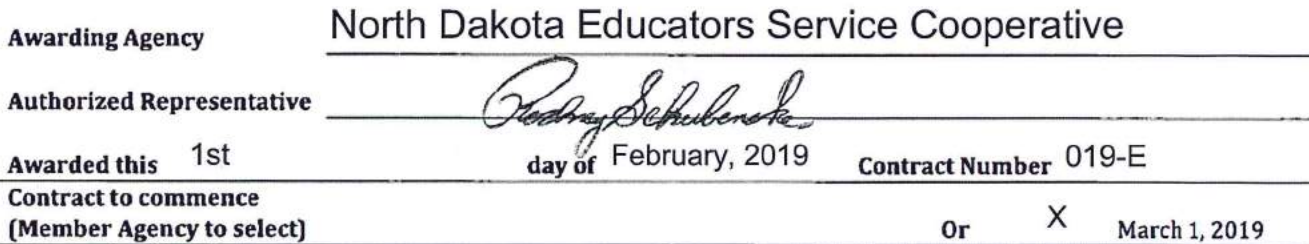 Awarding Agency North Dakota Educators Service Cooperative
Authorized Representative
Awarded this 1st day of February, 2019 Contract Number 019-E
Contract to commence
(Member Agency to select) Or X March 1, 2019